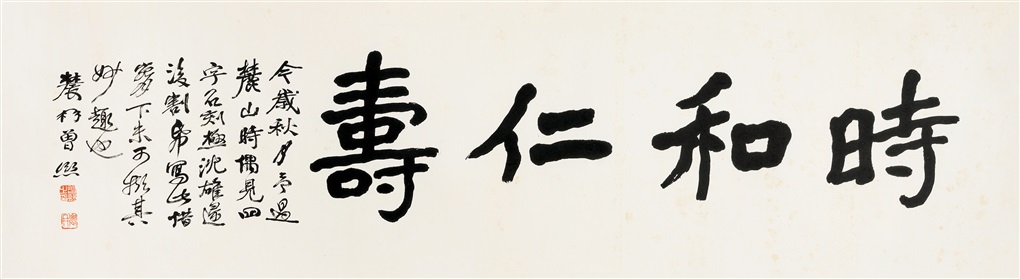 時和仁壽
今歲秋月予過
麓山時偶見四
字石刻極沈雄遂
後割帛寫此惜
下未可擬其
妙趣也
農髯曾熙